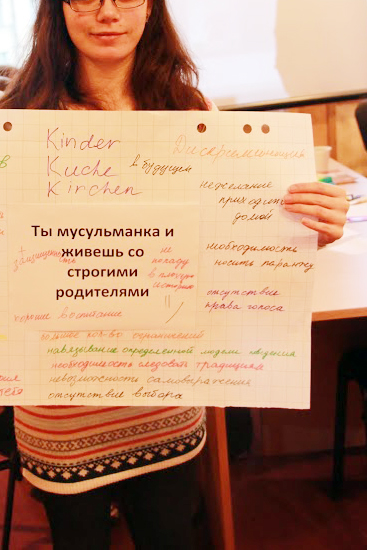 Kinder
Kuche
Kirchen
в будущем
Дискриминация
нежелание
приходить
домой
Ты мусульманка и
живешь со
строгими
родителями
+
защищенность
не
попаду
в плохую
историю
!!
необходимость
носить паранжу
отсутствие
права голоса
хорошее воспитание
большое кол-во ограничений
навязывание определенной модели
необходимость следовать традициям
невозможность самовыражения
отсутствие выбора